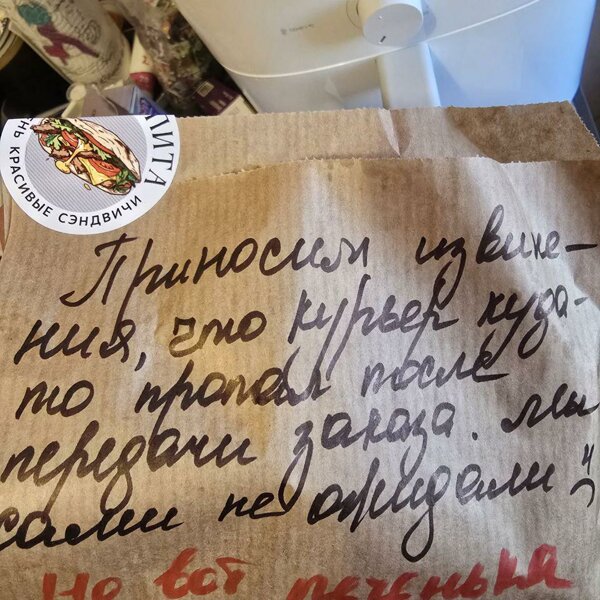 ПИТА
ЕНЬ КРАСИВЫЕ СЭНДВИЧИ
Приносим извине-
ния, что курьер куда-
то пропал после
передачи заказа. Мы
сами не ожидали
Но вот печенька